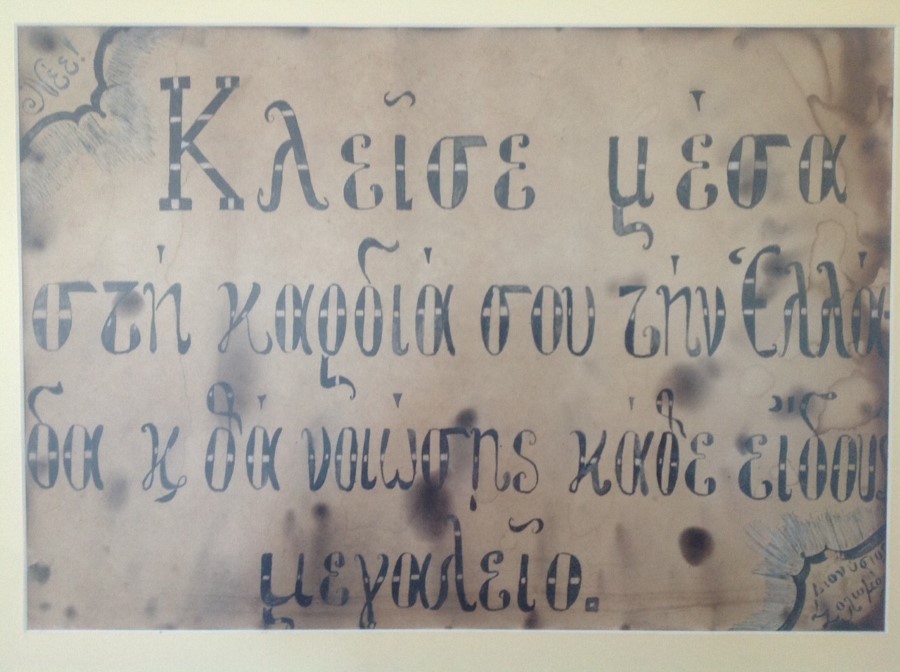 Νέε!
Κλεῖσε μἐσα
στἠ καρδιἀ σου τἠν Ἑλλἀ-
δα ϗ θἀ νοιὠσῃς κἀθε εἴδους
μεγαλεῖο.
Διονύσιο
Σολωμο